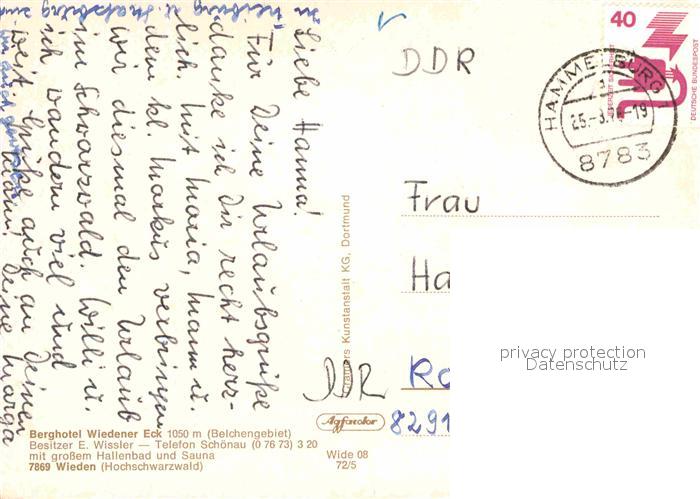 Liebe Hanna!
Für Deine Urlaubsgrüße
danke ich Dir recht herz-
lich. Mit Maria, Mann u.
dem kl. Markus verbringen
wir diesmal den Urlaub
im Schwarzwald. Willi u.
ich wandern viel und
weit. Grüße auch an Deinen
Mann, Deine Marga
in Freiburg u. Straßburg sind
wir auch gewesen.
DDR
40
JEDERZEIT SICHERHEIT
DEUTSCHE BUNDESPOST
HAMMELBURG 1
25.-8. -19
8783
Frau
Ha
DDR
8291
privacy protection
Datenschutz
Kunstanstalt KG, Dortmund
Agfacolor
Wide 08
72/5
Berghotel Wiedener Eck 1050 m (Belchengebiet)
Besitzer E. Wissler — Telefon Schönau (0 76 73) 3 20
mit großem Hallenbad und Sauna
7869 Wieden (Hochschwarzwald)